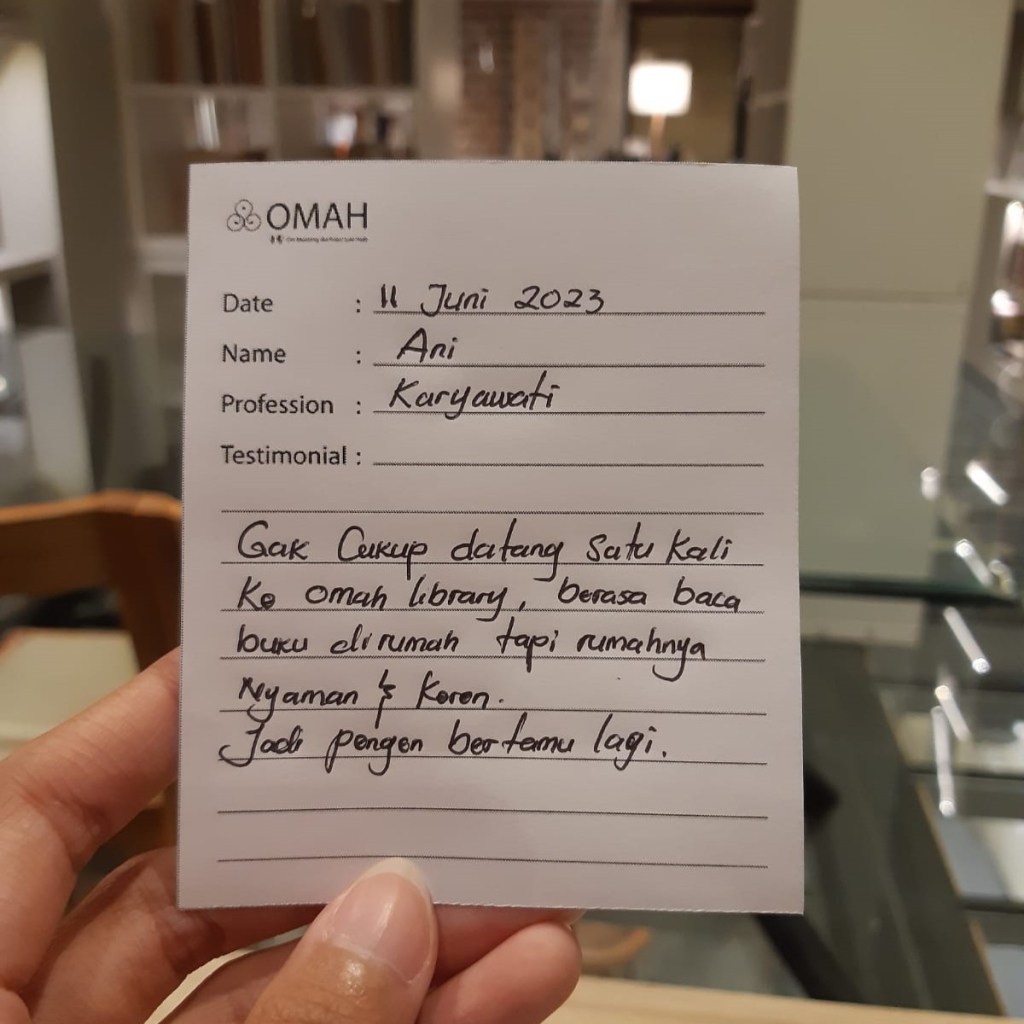 OMAH
Date : 11 Juni 2023
Name : Ani
Profession : Karyawati
Testimonial :
Gak Cukup datang Satu Kali
Ke omah library, berasa baca
buku dirumah tapi rumahnya
Nyaman & Keren.
Jadi pengen bertamu lagi.